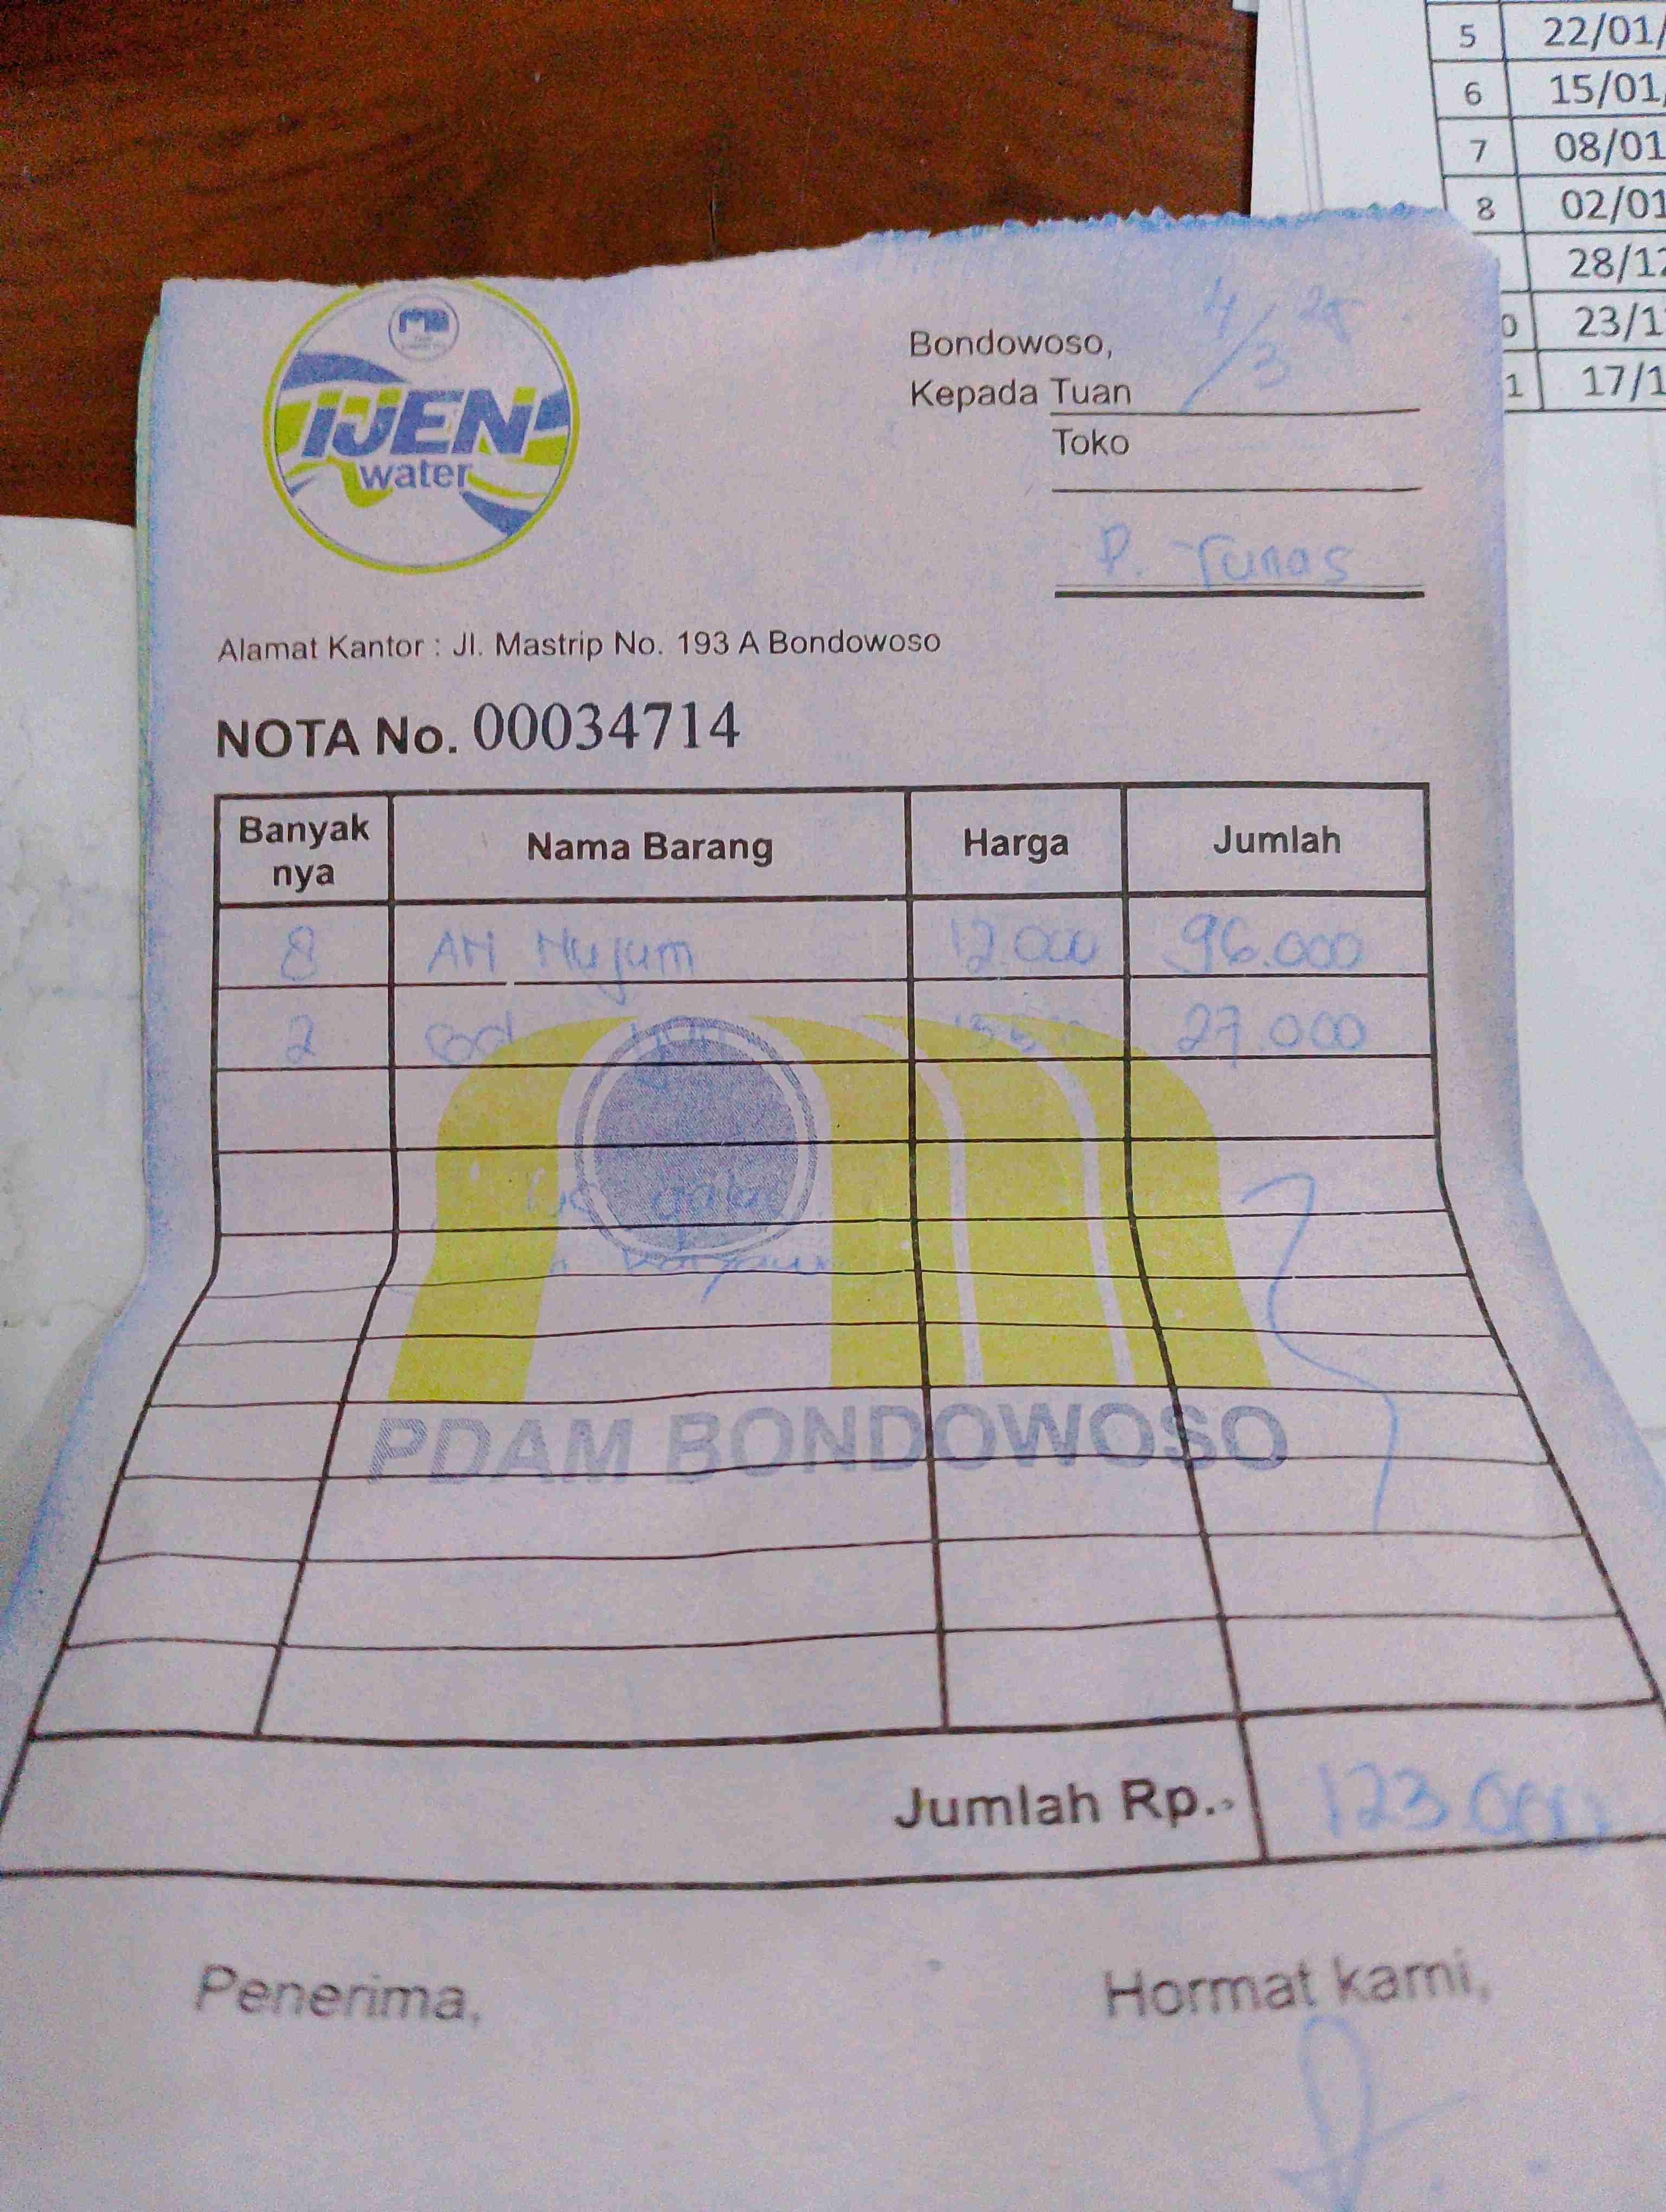 5 22/01/
6 15/01/
7 08/01
8 02/01
28/12
23/1
17/1
IJEN
water
Bondowoso, 4/3 25
Kepada Tuan
Toko
P. Tunas
Alamat Kantor : Jl. Mastrip No. 193 A Bondowoso
NOTA No. 00034714
Banyak nya Nama Barang Harga Jumlah
8 An Nujum 12.000 96.000
2 27.000
PDAM BONDOWOSO
Jumlah Rp.- 123.000
Penerima, Hormat kami,